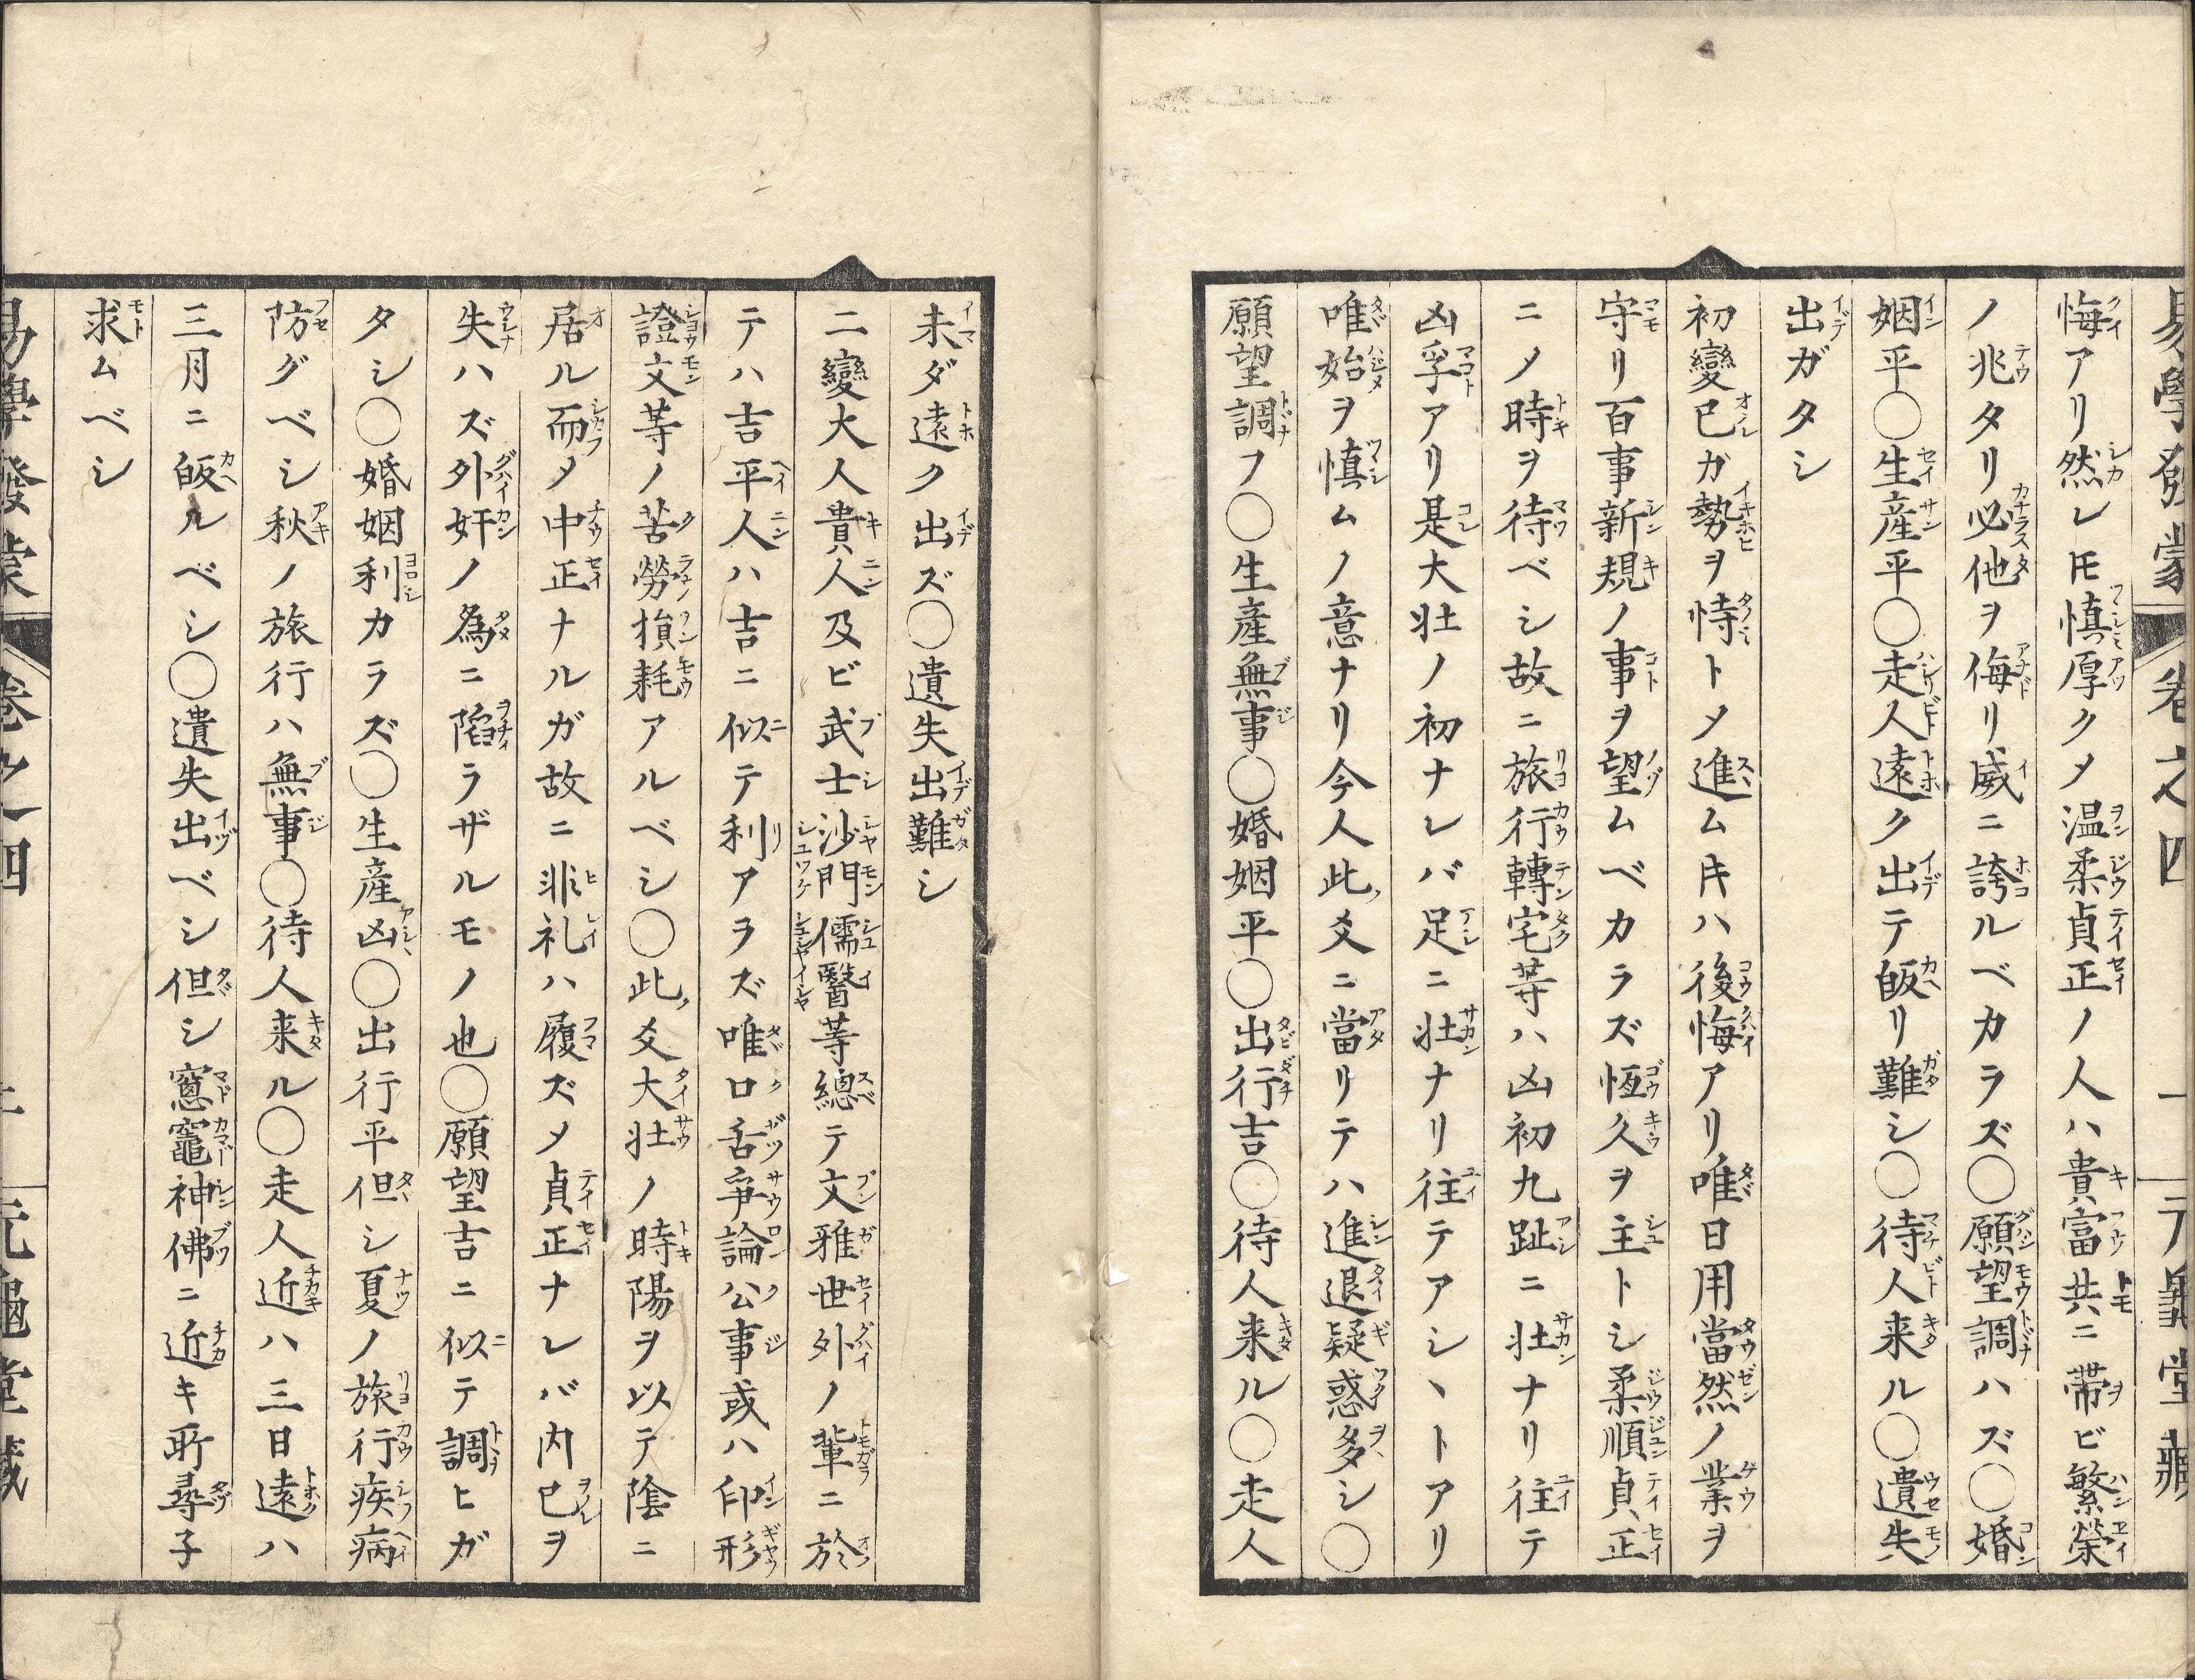 易學發蒙 卷之四 元龜堂藏
悔アリ然レ𪜈慎厚クメ温柔貞正ノ人ハ貴富共ニ帯ビ繁榮
ノ兆タリ必他ヲ侮リ威ニ誇ルベカラズ〇願望調ハズ〇婚
姻平〇生産平〇走人遠ク出テ皈リ難シ〇待人来ル〇遺失
出ガタシ
初變己ガ勢ヲ恃トメ進ムキハ後悔アリ唯日用當然ノ業ヲ
守リ百事新規ノ事ヲ望ムベカラズ恆久ヲ主トシ柔順貞正
ニノ時ヲ待ベシ故ニ旅行轉宅等ハ凶初九趾ニ壮ナリ往テ
凶孚アリ是大壮ノ初ナレバ足ニ壮ナリ往テアシヽトアリ
唯始ヲ慎ムノ意ナリ今人此爻ニ當リテハ進退疑惑多シ〇
願望調フ〇生産無事〇婚姻平〇出行吉〇待人来ル〇走人
未ダ遠ク出ズ〇遺失出難シ
二變大人貴人及ビ武士沙門儒醫等總テ文雅世外ノ輩ニ於
テハ吉平人ハ吉ニ似テ利アラズ唯口舌爭論公事或ハ印形
證文等ノ苦勞損耗アルベシ〇此爻大壮ノ時陽ヲ以テ陰ニ
居ル而メ中正ナルガ故ニ非礼ハ履ズメ貞正ナレバ内己ヲ
失ハズ外奸ノ為ニ陷ラザルモノ也〇願望吉ニ似テ調ヒガ
タシ〇婚姻利カラズ〇生産凶〇出行平但シ夏ノ旅行疾病
防グベシ秋ノ旅行ハ無事〇待人来ル〇走人近ハ三日遠ハ
三月ニ皈ルベシ〇遺失出ベシ但シ窻竈神佛ニ近キ所尋子
求ムベシ
易學發蒙 卷之四 元龜堂藏